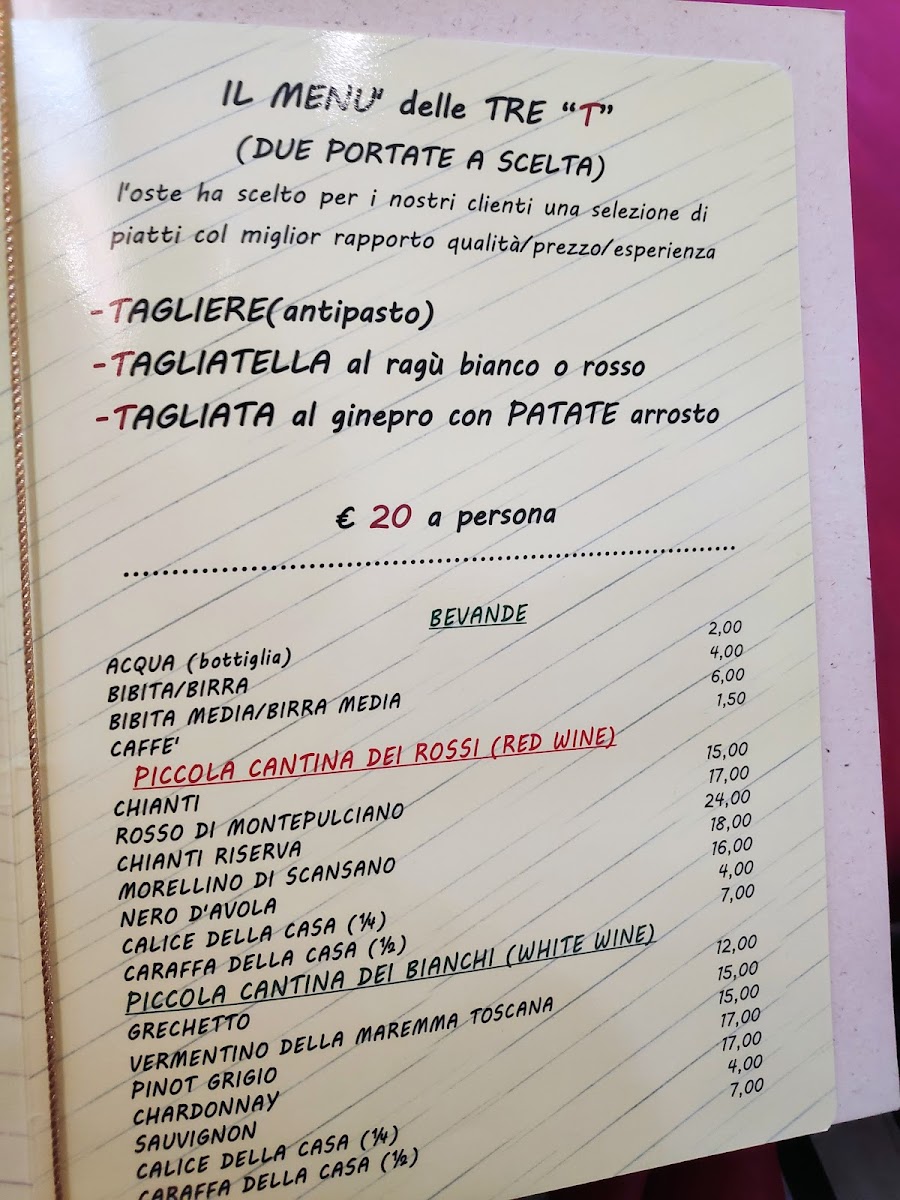 IL MENU' delle TRE “T”
(DUE PORTATE A SCELTA)
l'oste ha scelto per i nostri clienti una selezione di
piatti col miglior rapporto qualità/prezzo/esperienza
-TAGLIERE(antipasto)
-TAGLIATELLA al ragù bianco o rosso
-TAGLIATA al ginepro con PATATE arrosto
€ 20 a persona
BEVANDE
ACQUA (bottiglia) 2,00
BIBITA/BIRRA 4,00
BIBITA MEDIA/BIRRA MEDIA 6,00
CAFFE' 1,50
PICCOLA CANTINA DEI ROSSI (RED WINE)
CHIANTI 15,00
ROSSO DI MONTEPULCIANO 17,00
CHIANTI RISERVA 24,00
MORELLINO DI SCANSANO 18,00
NERO D'AVOLA 16,00
CALICE DELLA CASA (¼) 4,00
CARAFFA DELLA CASA (½) 7,00
PICCOLA CANTINA DEI BIANCHI (WHITE WINE)
GRECHETTO 12,00
VERMENTINO DELLA MAREMMA TOSCANA 15,00
PINOT GRIGIO 15,00
CHARDONNAY 17,00
SAUVIGNON 17,00
CALICE DELLA CASA (¼) 4,00
CARAFFA DELLA CASA (½) 7,00